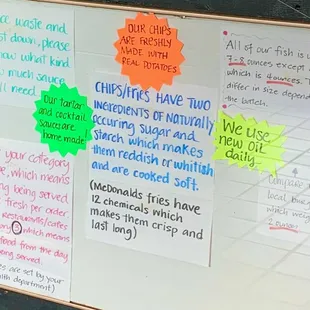 duce waste and
ust down, please
now what kind
ow much sauce
ll need.
OUR CHIPS
ARE FRESHLY
MADE WITH
REAL POTATOES
Our tartar
and cocktail
sauces are
home made!
CHIPS/FRIES HAVE TWO
INGREDIENTS OF NATURALLY
occuring sugar and
starch which makes
them reddish or whitish
and are cooked soft.
(McDonalds fries have
12 chemicals which
makes them crisp and
last long)
All of our fish is
7-8 ounces except
which is 4 ounces.
differ in size depend
the batch.
We use
new oil
daily.
local
which weig
2 ounces
your category
, which means
ing being served.
fresh per order
Restaurants/cafes
which means
food from the day
being served.
es are set by your
health department)